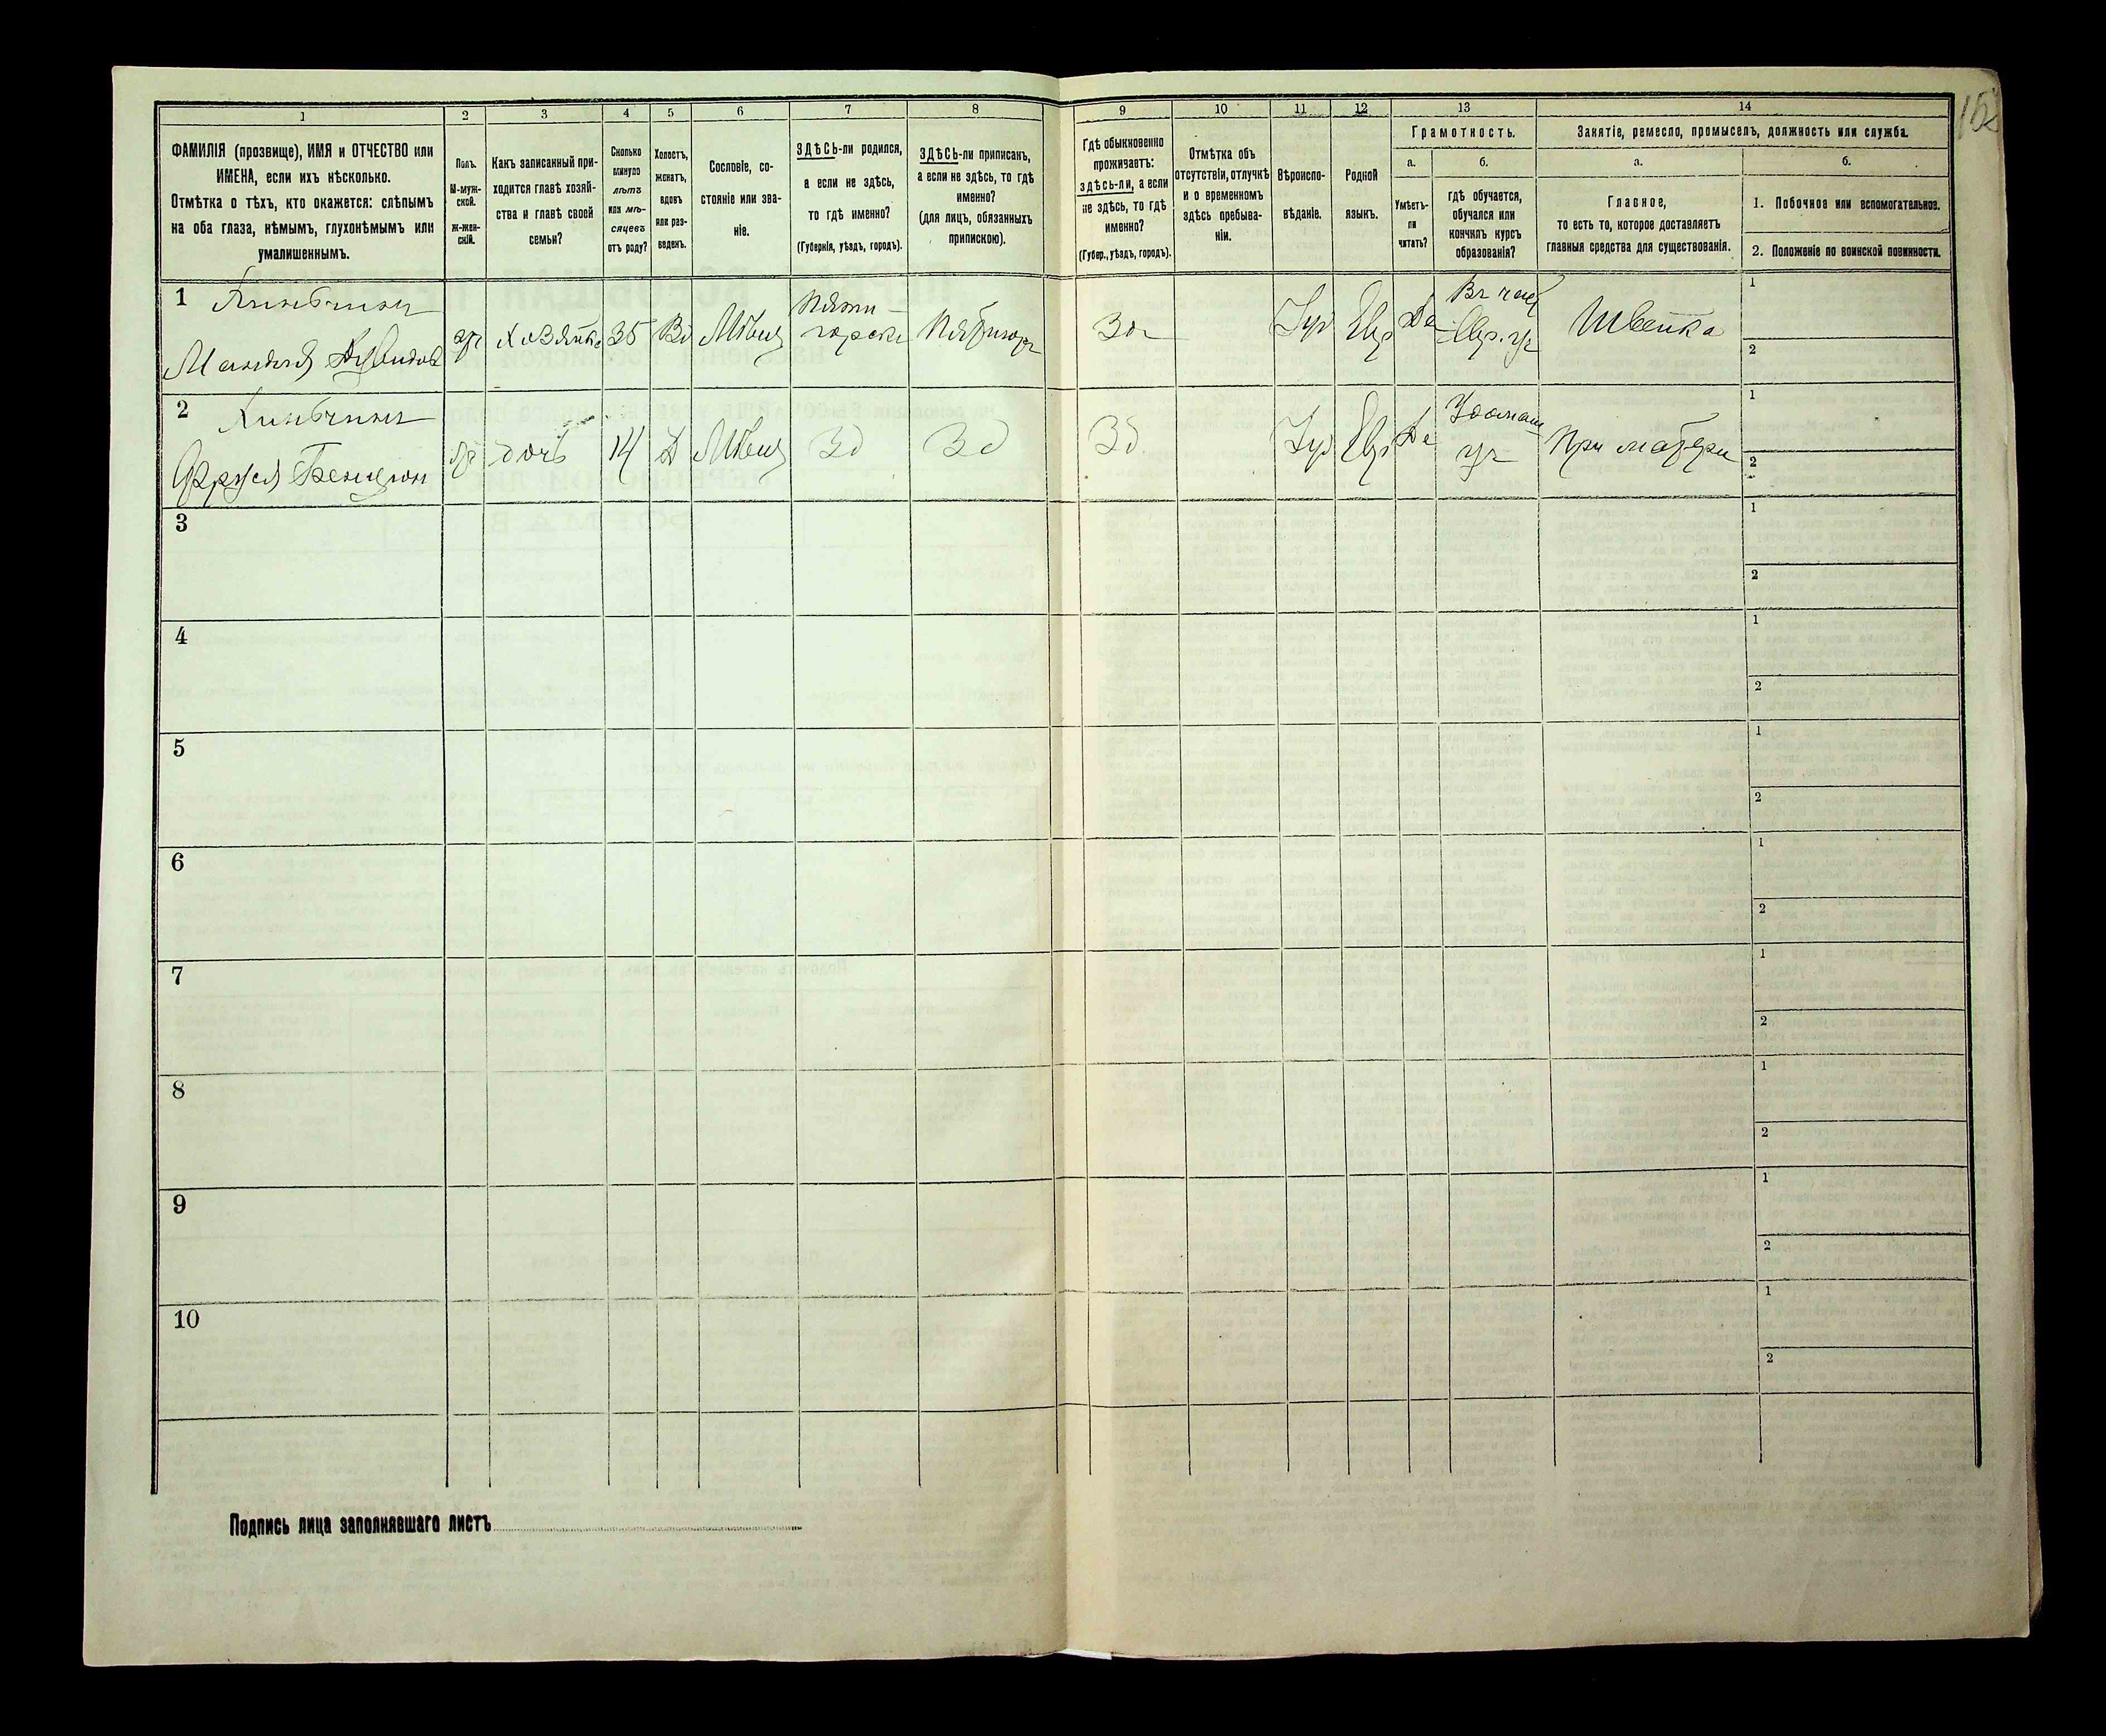 1
2
3
4
5
6
7
8
9
10
11
12
13
14
ФАМИЛІЯ (прозвище), ИМЯ и ОТЧЕСТВО или
ИМЕНА, если ихъ нѣсколько.
Отмѣтка о тѣхъ, кто окажется: слѣпымъ
на оба глаза, нѣмымъ, глухонѣмымъ или
умалишеннымъ.
Полъ.
М-муж-
ской.
ж-жен-
скій.
Какъ записанный при-
ходится главѣ хозяй-
ства и главѣ своей
семьи?
Сколько
минуло
лѣтъ
или мѣ-
сяцевъ
отъ роду?
Холостъ,
женатъ,
вдовъ
или раз-
веденъ.
Сословіе, со-
стояніе или зва-
ніе.
ЗДѢСЬ-ли родился,
а если не здѣсь,
то гдѣ именно?
(Губернія, уѣздъ, городъ).
ЗДѢСЬ-ли приписанъ,
а если не здѣсь, то гдѣ
именно?
(для лицъ, обязанныхъ
припискою).
Гдѣ обыкновенно
проживаетъ:
здѣсь-ли, а если
не здѣсь, то гдѣ
именно?
(Губер., уѣздъ, городъ).
Отмѣтка объ
отсутствіи, отлучкѣ
и о временномъ
здѣсь пребыва-
ніи.
Вѣроиспо-
вѣданіе.
Родной
языкъ.
Грамотность.
а.
б.
Умѣетъ-
ли
читать?
гдѣ обучается,
обучался или
кончилъ курсъ
образованія?
Занятіе, ремесло, промыселъ, должность или служба.
а.
б.
Главное,
то есть то, которое доставляетъ
главныя средства для существованія.
1. Побочное или вспомогательное.
2. Положеніе по воинской повинности.
1
35 Вд
Да
Швейка
1
2
2
дочь 14 Д
Зд
Зд
Зд
Да
При матери
1
2
3
1
2
4
1
2
5
1
2
6
1
2
7
1
2
8
1
2
9
1
2
10
1
2
Подпись лица заполнявшаго листъ